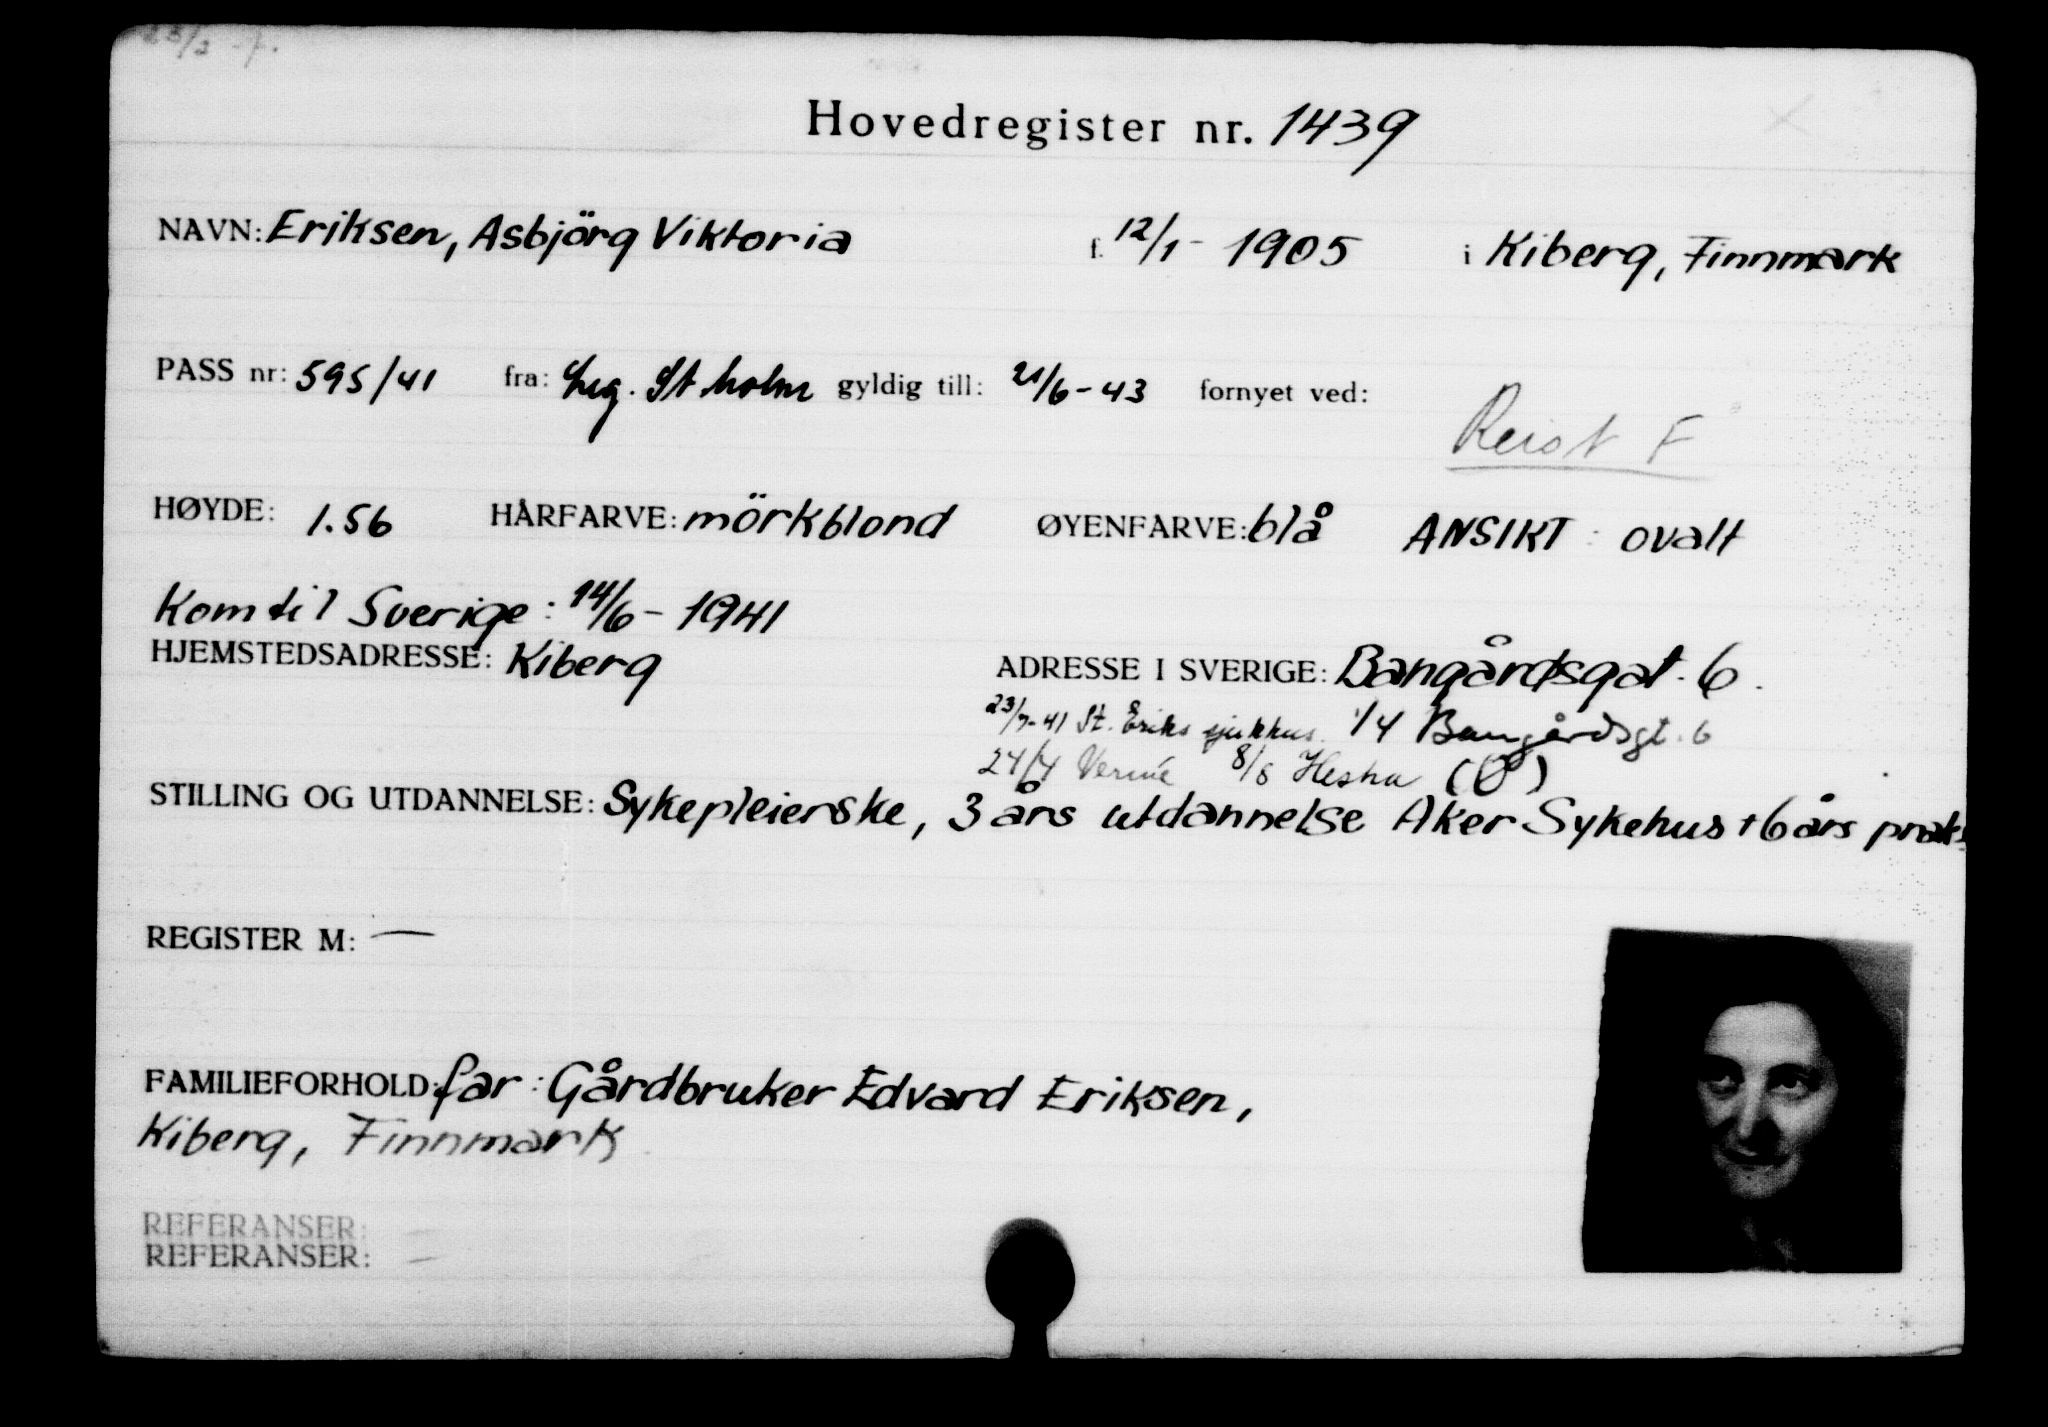 Hovedregister nr. 1439
NAVN: Eriksen, Asbjörg Viktoria f. 12/1 - 1905 i Kiberg, Finnmark
PASS nr: 595/41 fra: Leg. St.holm gyldig till: 21/6-43 fornyet ved:
Reist F
HØYDE: 1.56 HÅRFARVE: mörkblond ØYENFARVE: blå ANSIKT: ovalt
Kom til Sverige: 14/6 - 1941
HJEMSTEDSADRESSE: Kiberg ADRESSE I SVERIGE: Bangårdsgat. 6.
23/7-41 St. Eriks sjukhus. 1/4 Bangårdsgt. 6
24/4 8/8 (Ö)
STILLING OG UTDANNELSE: Sykepleierske, 3 års utdannelse Aker Sykehus + 6 års praks
REGISTER M: —
FAMILIEFORHOLD: far: Gårdbruker Edvard Eriksen,
Kiberg, Finnmark
REFERANSER: —
REFERANSER: —